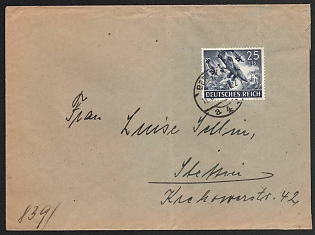 25
DEUTSCHES REICH
a
Frau Luise Sellin,
Stettin
Krekowerstr. 42
8391